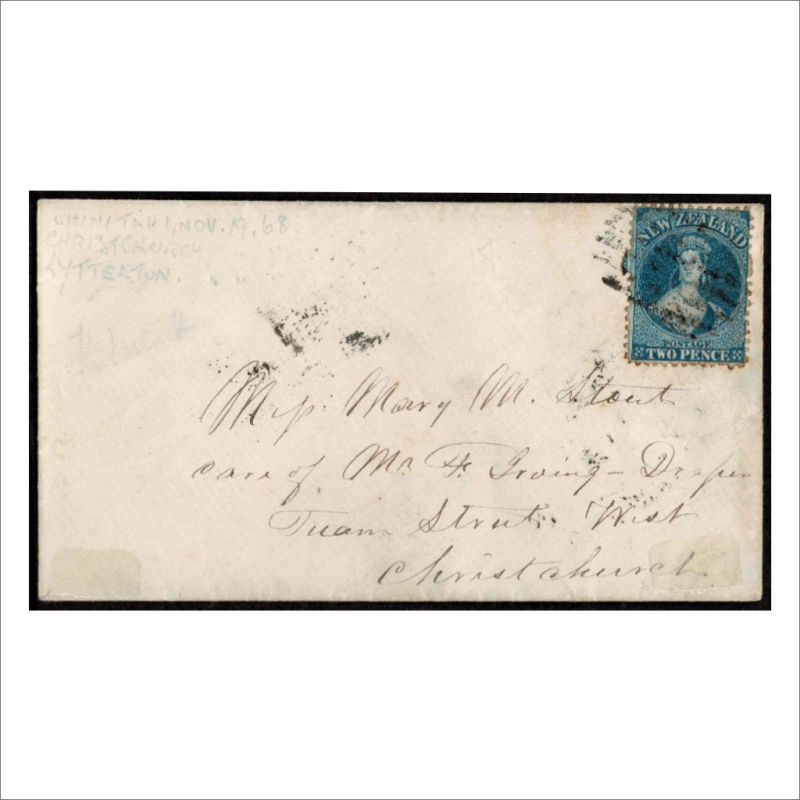 NOV. 19, 68.
CHRISTCHURCH " "
LYTTELTON. " "
NEW ZEALAND
POSTAGE
TWO PENCE
Miſs. Mary M. Stout
care of Mr F. Irving - Draper
Tuam Street. West
Christchurch